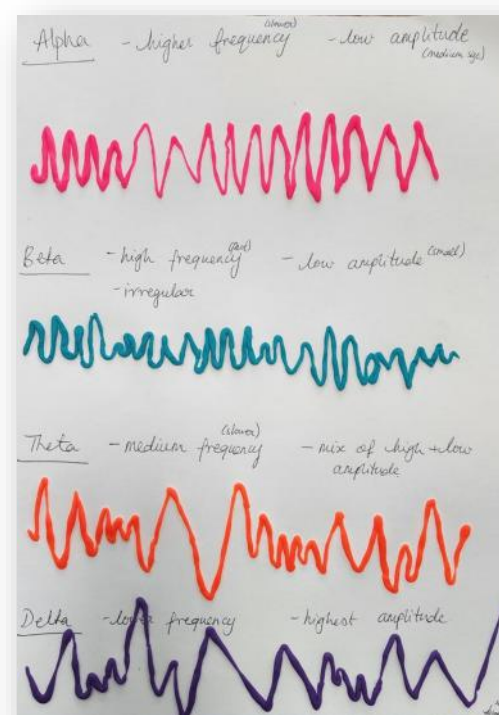 (slower)
Alpha - higher frequency - low amplitude
(medium size)
Beta - high frequency (fast) - low amplitude (small)
- irregular
(slower)
Theta - medium frequency - mix of high + low
amplitude
Delta - lower frequency - highest amplitude